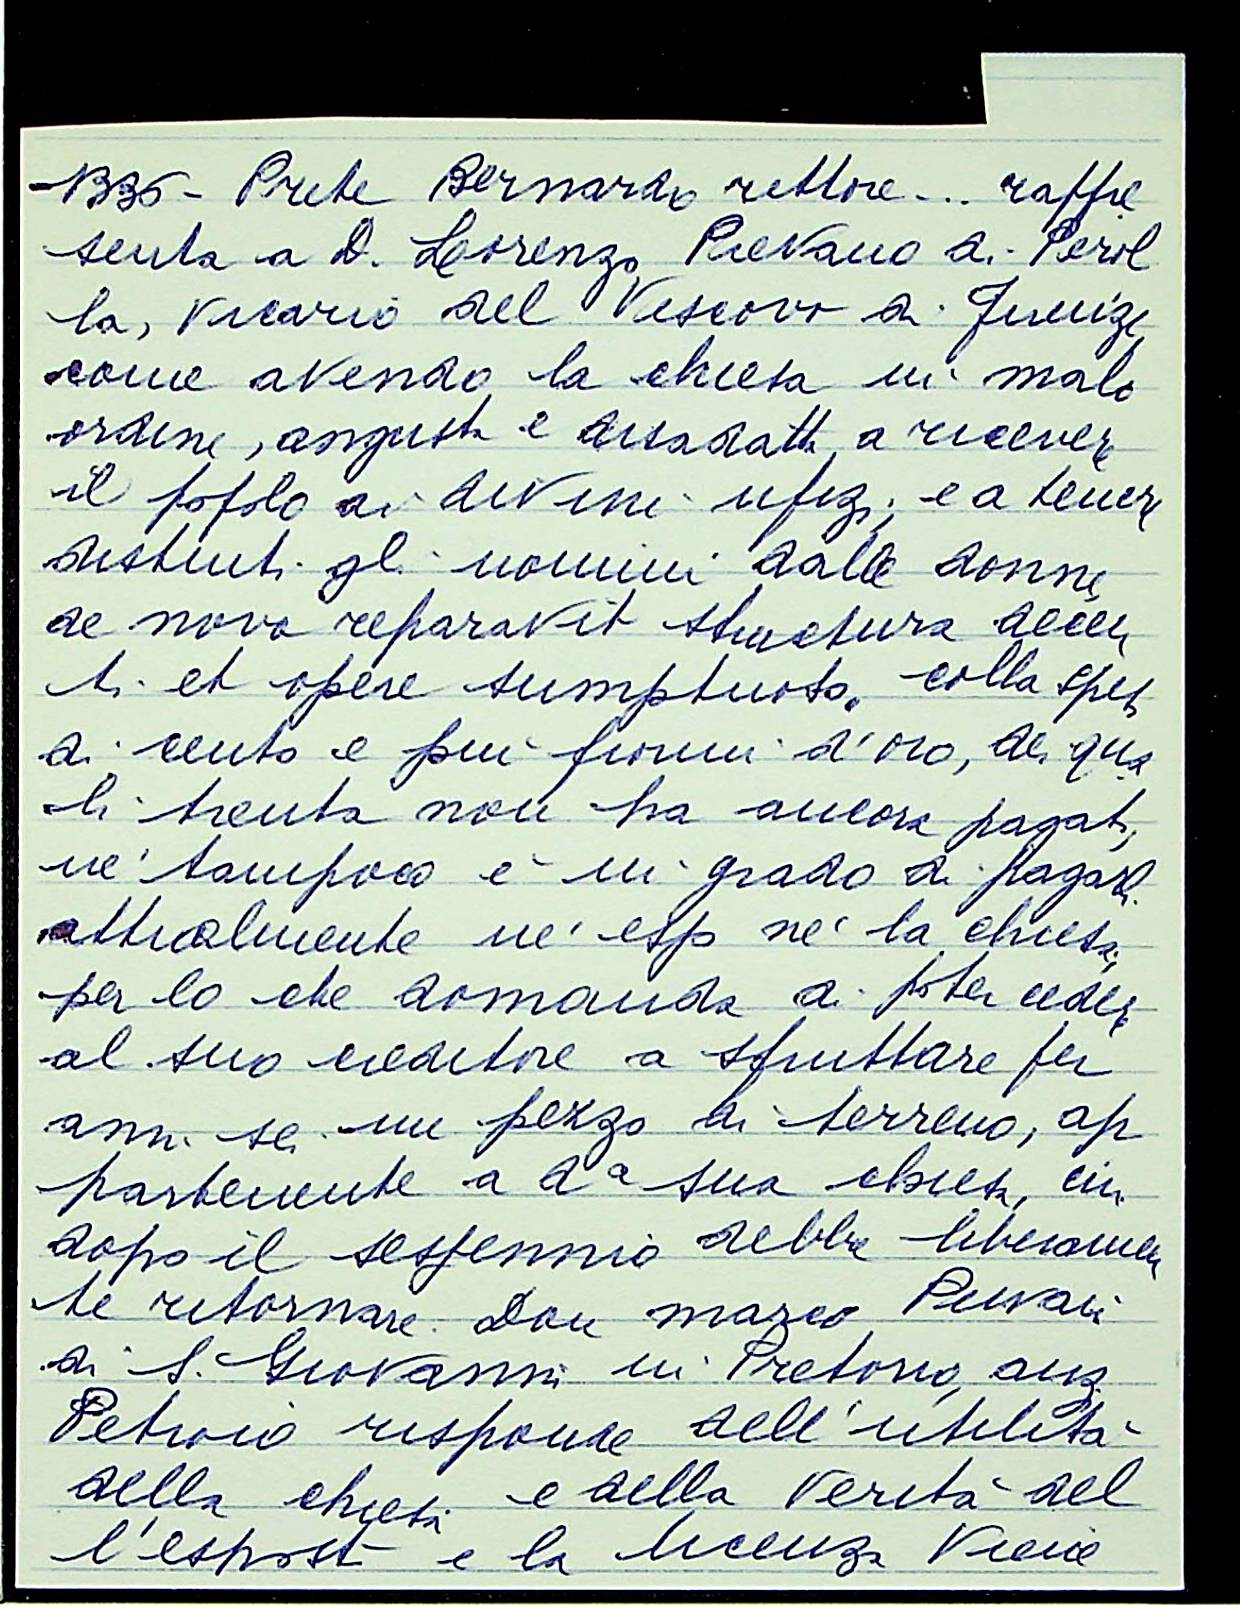 -1336- Prete Bernardo rettore... rappre
senta a D. Lorenzo, Pievano di Perol
la, Vicario del Vescovo di Firenze,
come avendo la chiesa in malo
ordine, angusta e disadatta a ricevere
il popolo ai divini ufizi, e a tenere
distinti gli uomini dalle donne,
de novo reparavit structura decen
ti et opere sumptuoso. colla spesa
di cento e più fiorini d'oro, dei qua
li trenta non ha ancora pagati,
ne' tampoco è in grado di pagarli
attualmente ne' esso ne' la chiesa,
per lo che domanda di poter cedere
al suo creditore a sfruttare per
anni sei un pezzo di terreno, ap
partenente a da sua chiesa, cui
dopo il sessennio debba liberamen
te ritornare. Don Marco Pievan
di S. Giovanni in Pretorio, anz.
Petroio risponde dell'utilità
della chiesa e della verità del
l'esposto e la licenza viene